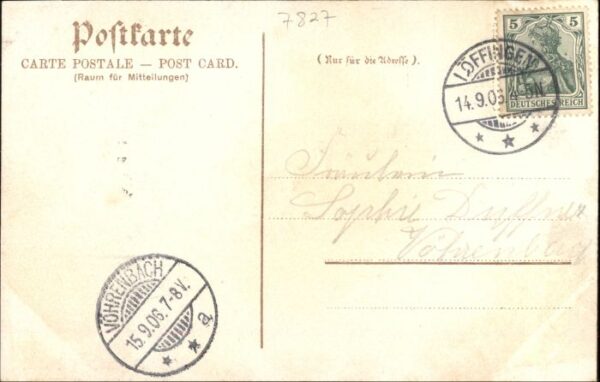 7827
Postkarte
CARTE POSTALE — POST CARD.
(Raum für Mitteilungen)
(Nur für die Adresse).
5 5
DEUTSCHES REICH
LÖFFINGEN
14.9.06. 4-5N.
* * *
Fräulein
Sophie Duffner
Vöhrenbach
VÖHRENBACH
15.9.06. 7-8V.
* * a